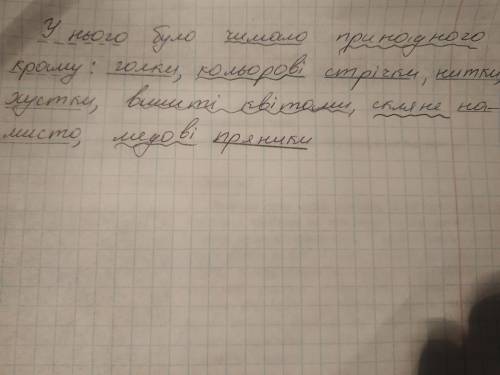 У нього було чимало принадного
краму: голки, кольорові стрічки, нитки,
хустки, вишиті квітами, скляне на-
мисто, медові пряники